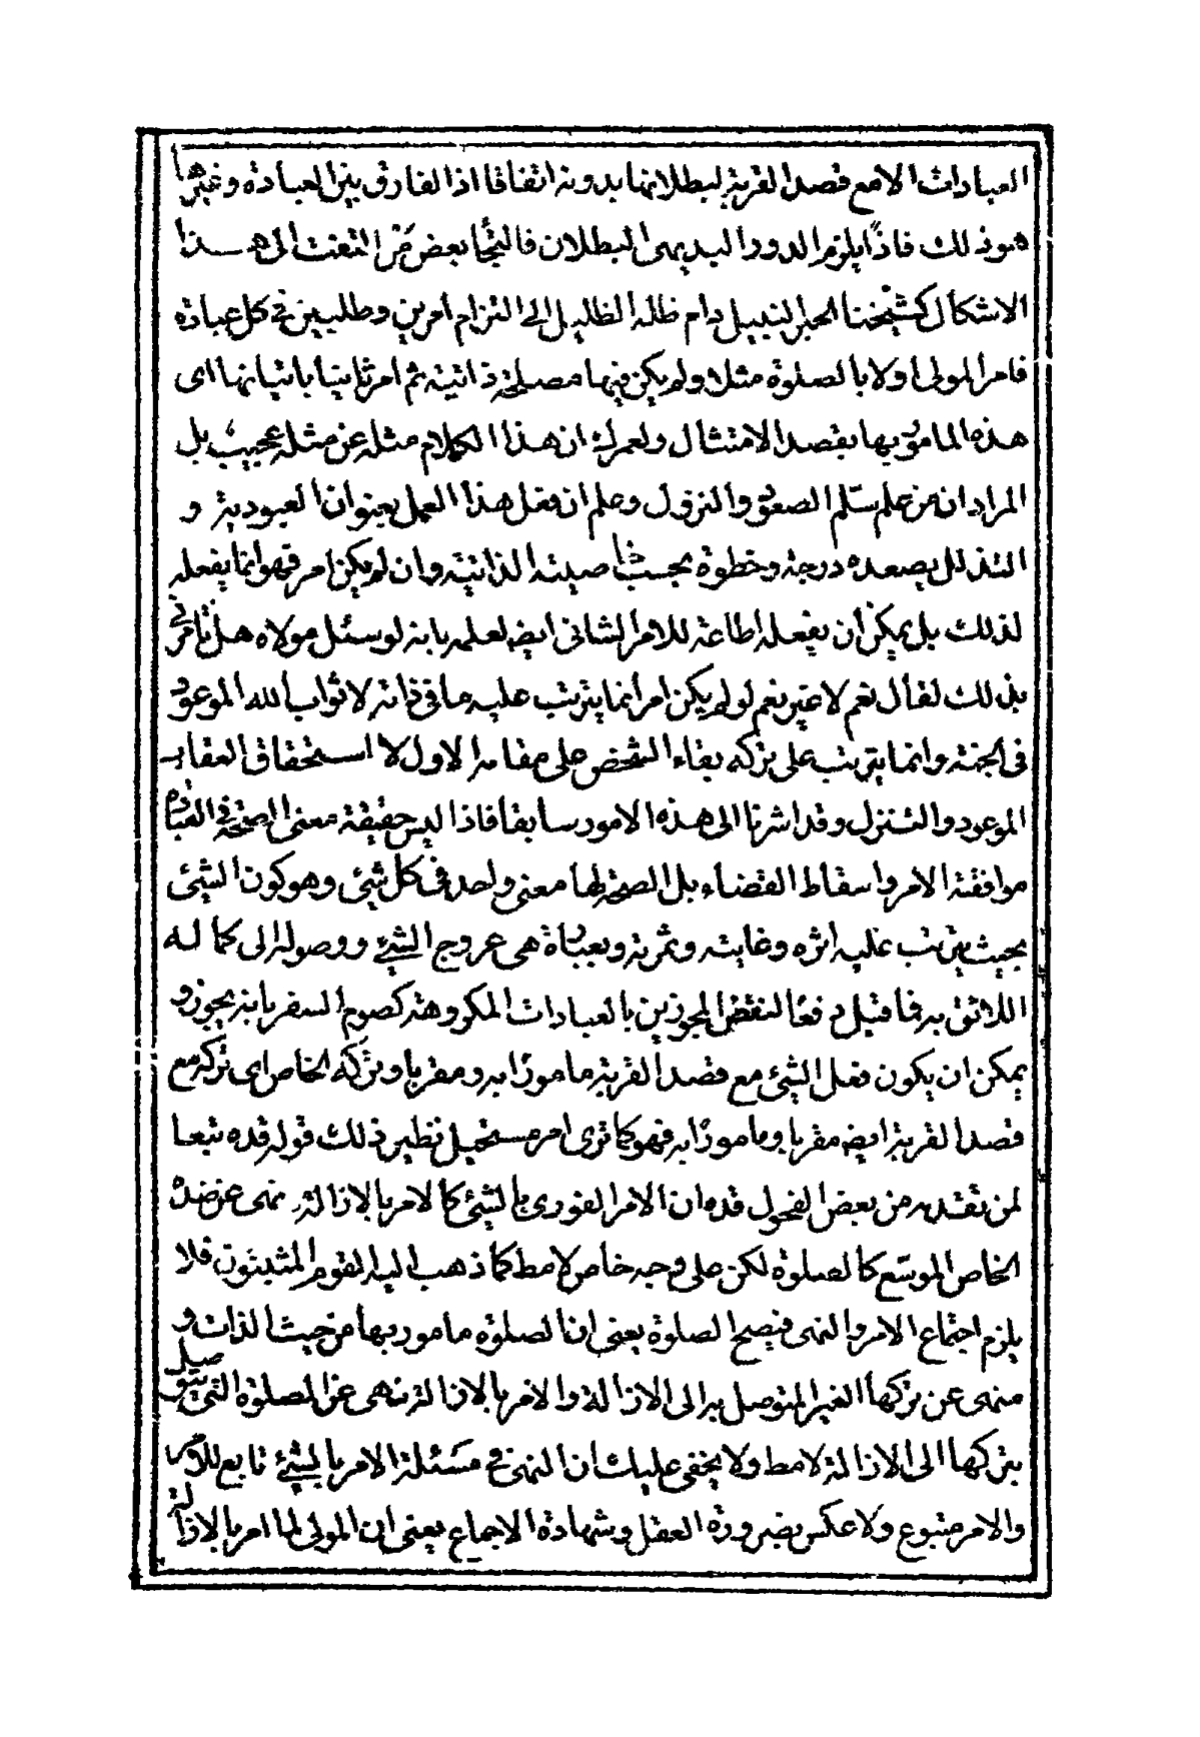 العبادات الا مع قصد القربة لبطلانها بدونه اتفاقا اذ الفارق بين العبادة وغيرها
هو ذلك فاذًا يلزم الدور البديهى البطلان فالتجأ بعض من التفت الى هذا
الاشكال كشيخنا الحبر النبيل دام ظله الظليل الى التزام امرين وطلبين فى كل عبادة
فامر المولى اولا بالصلوة مثلا ولم يكن فيها مصلحة ذاتية ثم امر ثانيا باتيانها اى
هذه المامور بها بقصد الامتثال ولعمرك ان هذا الكلام مثله عن مثله عجيب بل
المراد ان من علم سلّم الصعود والنزول وعلم ان فعل هذا العمل بعنوان العبودية و
التذلل يصعده درجة وخطوة بحسب خاصيته الذاتية وان لم يكن امر فهو انما يفعله
لذلك بل يمكن ان يفعله اطاعة للامر الشانى ايضه لعلمه بانه لو سئل مولاه هل تامرنى
بذلك لقال نعم لا غير نعم لو لم يكن امر انما يترتب عليه ما فى ذاته لا ثواب الله الموعود
فى الجنة وانما يترتب على تركه بقاء الشخص على مقامه الاول لا استحقاق العقاب
الموعود والتنزل وقد اشرنا الى هذه الامور سابقا فاذا ليس حقيقة معنى الصحة فى العبادة
موافقة الامر واسقاط القضاء بل الصحة لها معنى واحد فى كل شئ وهو كون الشئ
بحيث يترتب عليه اثره وغايته وثمرته وبعبارة هى عروج الشئ ووصوله الى كماله
اللائق به فما قيل دفعًا لنقض المجوزين بالعبادات المكروهة كصوم السفر بانه يجوز و
يمكن ان يكون فعل الشئ مع قصد القربة مامورًا به ومقربا وتركه الخاص اى تركه مع
قصد القربة ايضه مقربا ومامورًا به فهو كما ترى امر مستحيل نظير ذلك قوله قده تبعا
لمن تقدمه من بعض الفحول قده ان الامر الفورى بالشئ كالامر بالازالة نهى عن ضده
الخاص الموسّع كالصلوة لكن على وجه خاص لا مط كما ذهب اليه القوم المثبتون فلا
يلزم اجتماع الامر والنهى فيصح الصلوة يعنى ان الصلوة مامور بها من حيث الذات و
منهى عن تركها الغير المتوصل به الى الازالة والامر بالازالة نهى عن الصلوة التى يتوصل
بتركها الى الازالة لا مط ولا يخفى عليك ان النهى فى مسئلة الامر بالشئ تابع للامر
والامر متبوع ولا عكس بضرورة العقل وشهادة الاجماع يعنى ان المولى لما امر بالازالة